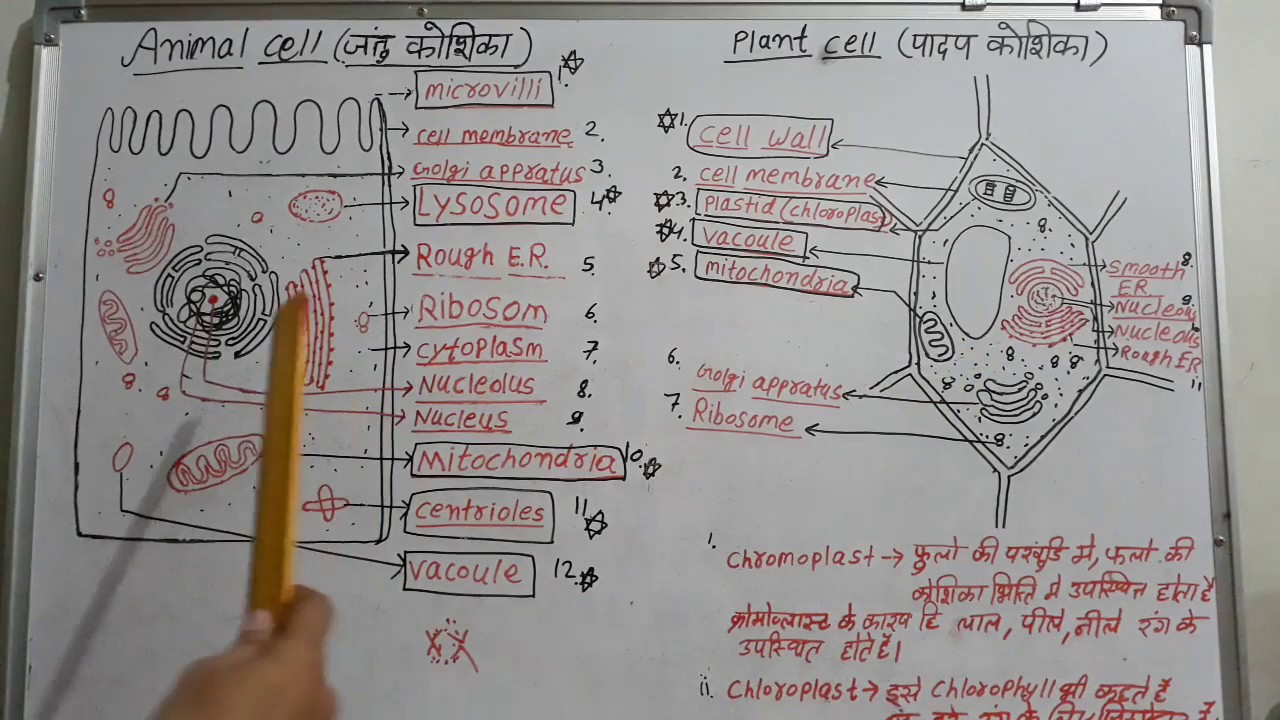 Animal cell (जंतु कोशिका)
microvilli 1.
cell membrane 2.
Golgi appratus 3.
Lysosome 4.
Rough E.R. 5.
Ribosom 6.
cytoplasm 7.
Nucleolus 8.
Nucleus 9.
Mitochondria 10.
centrioles 11
vacoule 12.
Plant cell (पादप कोशिका)
1. cell wall
2. cell membrane
3. Plastid (chloroplast)
4. vacoule
5. mitochondria
6. Golgi appratus
7. Ribosome
8.
Smooth
ER
9.
Nucleous
Nucleous
Rough ER
11
i. chromoplast → फुलो की पंखुडि मे, फलो की
कोशिका भित्ति मे उपस्थित होता है
क्रोमोप्लास्ट के कारण हि लाल, पीले, नीले रंग के
उपस्थित होते है।
ii. chloroplast → इसे chlorophyll भी कहते है